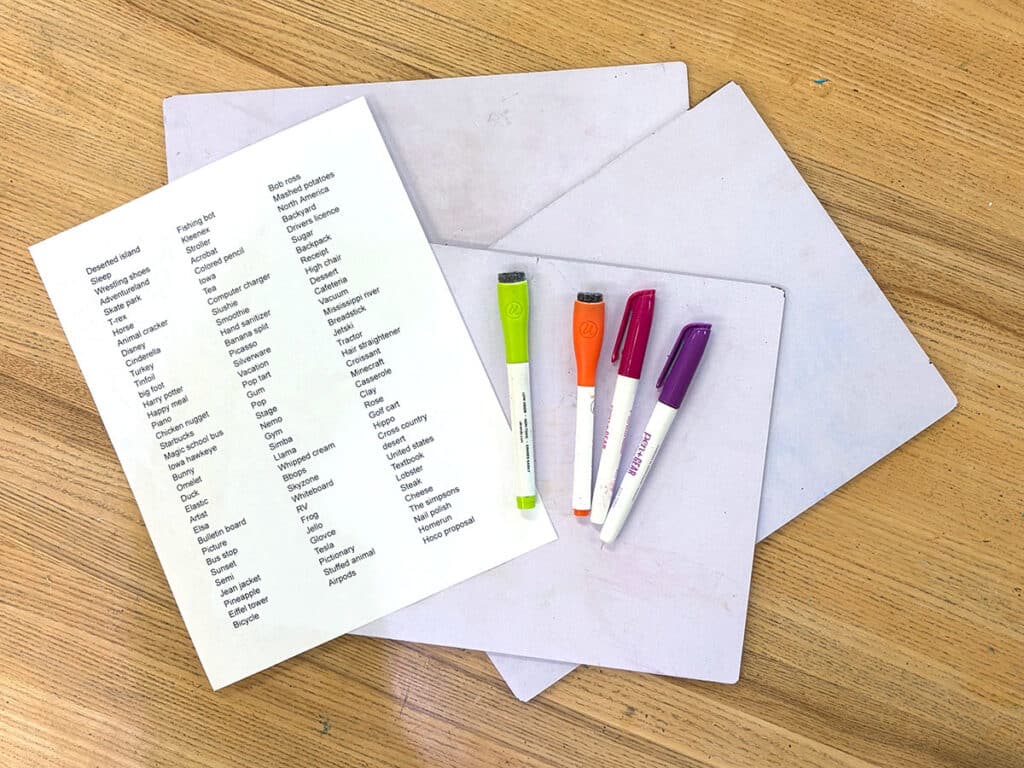 Deserted island
Sleep
Wrestling shoes
Adventureland
Skate park
T-rex
Horse
Animal cracker
Disney
Cinderella
Turkey
Tinfoil
big foot
Harry potter
Happy meal
Piano
Chicken nugget
Starbucks
Magic school bus
Iowa hawkeye
Bunny
Omelet
Duck
Elastic
Artist
Elsa
Bulletin board
Picture
Bus stop
Sunset
Semi
Jean jacket
Pineapple
Eiffel tower
Bicycle
Fishing bot
Kleenex
Stroller
Acrobat
Colored pencil
Iowa
Tea
Computer charger
Slushie
Smoothie
Hand sanitizer
Banana split
Picasso
Silverware
Vacation
Pop tart
Gum
Pop
Stage
Nemo
Gym
Simba
Llama
Whipped cream
Bbops
Skyzone
Whiteboard
RV
Frog
Jello
Glovce
Tesla
Pictionary
Stuffed animal
Airpods
Bob ross
Mashed potatoes
North America
Backyard
Drivers licence
Sugar
Backpack
Receipt
High chair
Dessert
Cafeteria
Vacuum
Mississippi river
Breadstick
Jetski
Tractor
Hair straightener
Croissant
Minecraft
Casserole
Clay
Rose
Golf cart
Hippo
Cross country
desert
United states
Textbook
Lobster
Steak
Cheese
The simpsons
Nail polish
Homerun
Hoco proposal